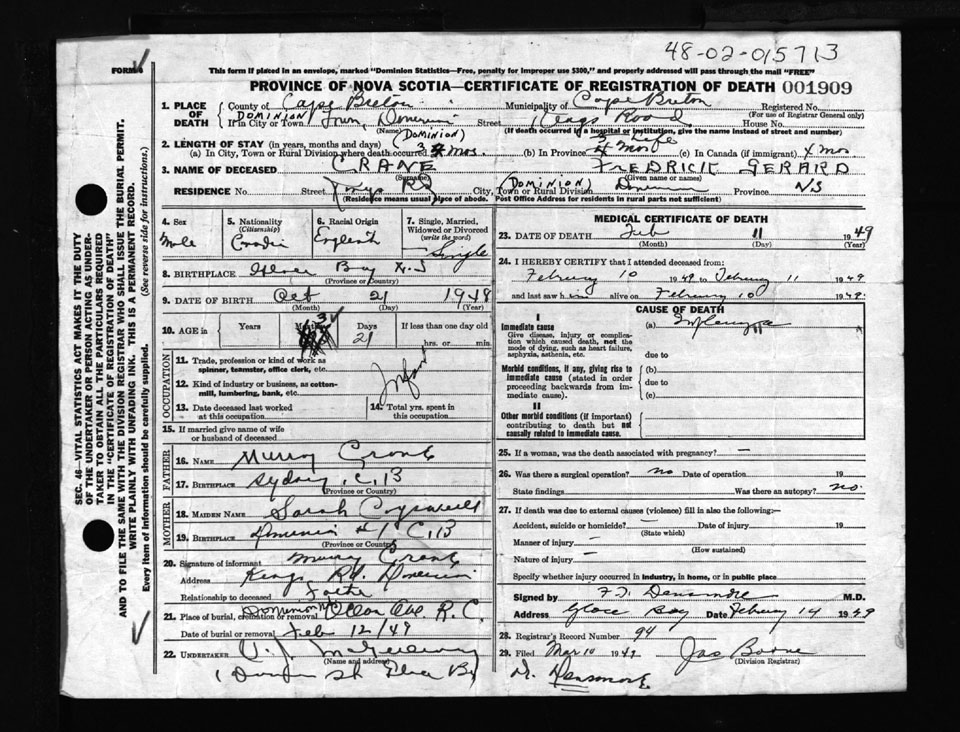 48-02-015713
FORM
This form if placed in an envelope, marked "Dominion Statistics—Free, penalty for improper use $300," and properly addressed will pass through the mail "FREE"
PROVINCE OF NOVA SCOTIA—CERTIFICATE OF REGISTRATION OF DEATH 001909
1. PLACE OF DEATH County of Cape Breton Municipality of Cape Breton Registered No.
(For use of Registrar General only)
DOMINION If in City or Town Town, Street Kings Road House No.
(Name) (If death occurred in a hospital or institution, give the name instead of street and number)
2. LENGTH OF STAY (in years, months and days) (DOMINION)
(a) In City, Town or Rural Division where death occurred 3 mos. (b) In Province Life (c) In Canada (if immigrant)
3. NAME OF DECEASED CRANE FREDRICK GERARD
(Surname) (Given name or names)
RESIDENCE No. Street Kings Rd City, Town or Rural Division (DOMINION) Dominion Province NS
(Residence means usual place of abode. Post Office Address for residents in rural parts not sufficient)
4. Sex Male
5. Nationality (Citizenship)
6. Racial Origin English
7. Single, Married, Widowed or Divorced (write the word) Single
8. BIRTHPLACE Glace Bay N.S
(Province or Country)
9. DATE OF BIRTH Oct 21 1948
(Month) (Day) (Year)
10. AGE in Years Months 3 Days 21 If less than one day old hrs. or min.
OCCUPATION
11. Trade, profession or kind of work as spinner, teamster, office clerk, etc.
Infant
12. Kind of industry or business, as cotton-mill, lumbering, bank, etc.
13. Date deceased last worked at this occupation
14. Total yrs. spent in this occupation
15. If married give name of wife or husband of deceased
FATHER
16. NAME Murray Crane
17. BIRTHPLACE Sydney, C, B
(Province or Country)
MOTHER
18. MAIDEN NAME Sarah
19. BIRTHPLACE Dominion #1 C, B
(Province or Country)
20. Signature of informant Murray Crane
Address Kings Rd. Dominion
Relationship to deceased Father
21. Place of burial, cremation or removal Dominion Ocean Ave R.C.
Date of burial or removal Feb 12/49
22. UNDERTAKER
(Name and address)
MEDICAL CERTIFICATE OF DEATH
23. DATE OF DEATH Feb 11 1949
(Month) (Day) (Year)
24. I HEREBY CERTIFY that I attended deceased from:
February 10 1949 to February 11 1949
and last saw him alive on February 10 1949.
CAUSE OF DEATH
I
Immediate cause (a)
Give disease, injury or complication which caused death, not the mode of dying, such as heart failure, asphyxia, asthenia, etc.
due to
Morbid conditions, if any, giving rise to immediate cause (stated in order proceeding backwards from immediate cause). (b)
due to
(c)
II
Other morbid conditions (if important) contributing to death but not causally related to immediate cause.
25. If a woman, was the death associated with pregnancy? —
26. Was there a surgical operation? no Date of operation 19
State findings Was there an autopsy? no.
27. If death was due to external causes (violence) fill in also the following:—
Accident, suicide or homicide? — Date of injury 19
(State which)
Manner of injury —
(How sustained)
Nature of injury —
Specify whether injury occurred in industry, in home, or in public place
Signed by M.D.
Address Glace Bay Date February 14 1949
28. Registrar's Record Number 94
29. Filed Mar 10 1949 Jas Boone
(Division Registrar)
SEC. 46—VITAL STATISTICS ACT MAKES IT THE DUTY
OF THE UNDERTAKER OR PERSON ACTING AS UNDER-
TAKER TO OBTAIN ALL THE PARTICULARS REQUIRED
IN THE "CERTIFICATE OF REGISTRATION OF DEATH"
AND TO FILE THE SAME WITH THE DIVISION REGISTRAR WHO SHALL ISSUE THE BURIAL PERMIT.
WRITE PLAINLY WITH UNFADING INK. THIS IS A PERMANENT RECORD.
Every item of information should be carefully supplied. (See reverse side for instructions.)